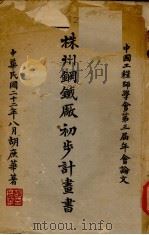 中國工程師學會第三屆年會論文
株州鋼鐵廠初步計畫書
中華民國二十三年八月胡庶華著